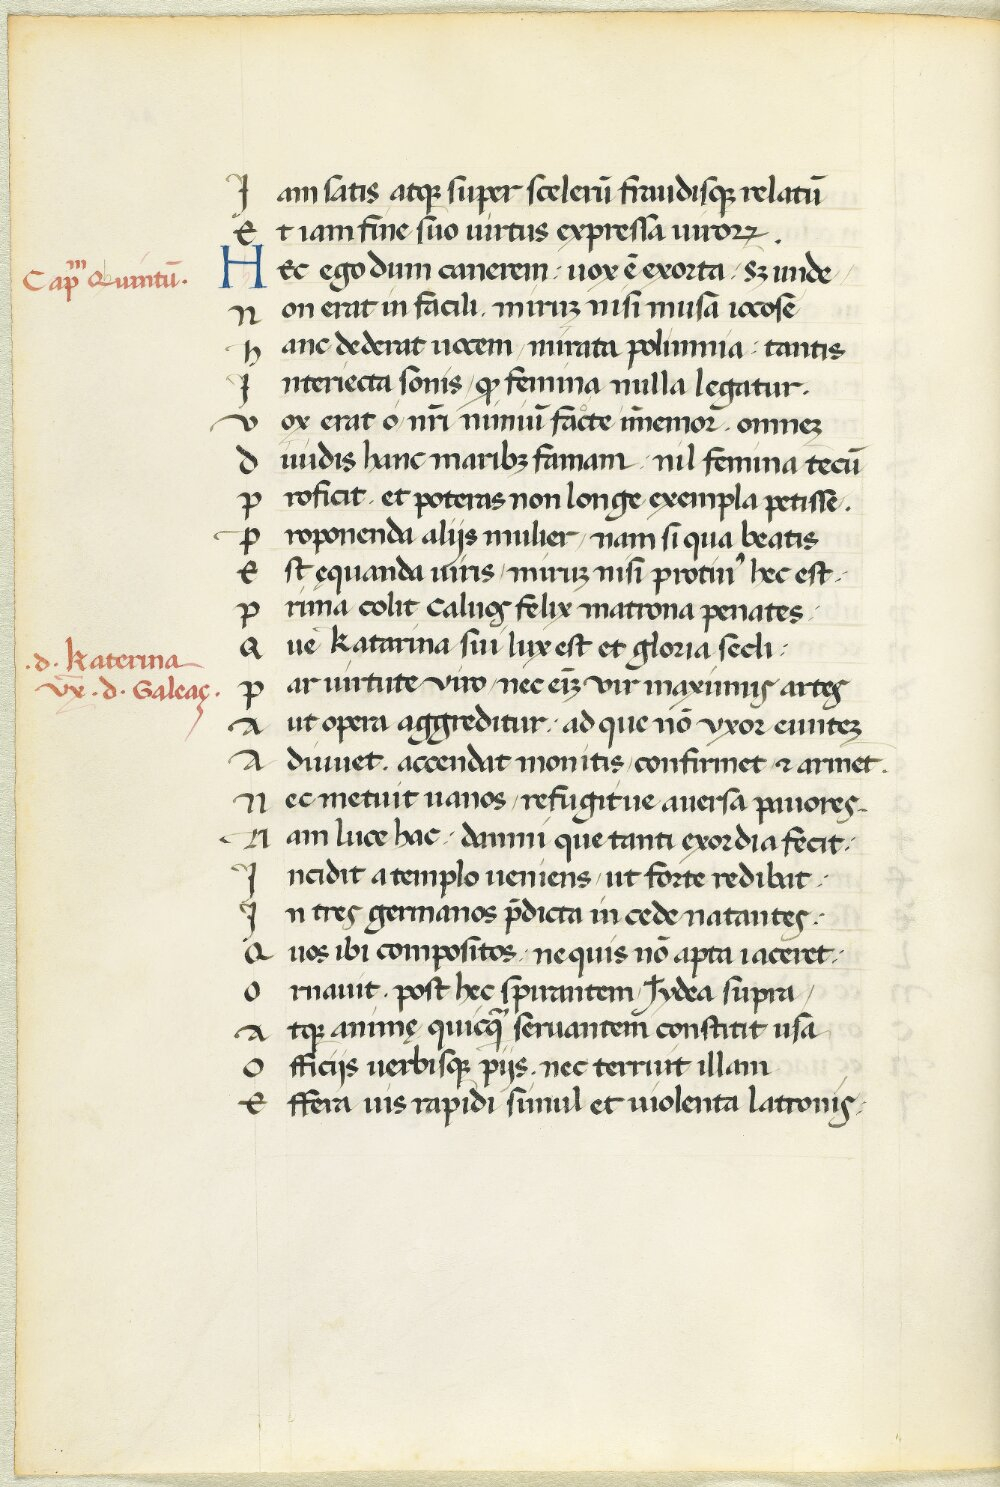 Jam satis atqꝫ super scelerū fraudisqꝫ relatū
Et iam fine suo uirtus expressa uiroꝝ.
Cap^m Quintū.
HEc ego dum canerem: uox ē exorta: Sꝫ unde
non erat in facili. miruꝫ nisi musa iocosē
hanc dederat uocem mirata polimnia: tantis
Jnteriecta sonis, ꝙ femina nulla legatur.
vox erat o nr̄i nimiū facte īmemor̄. omneꝫ
diuidis hanc maribꝫ famam. nil femina tecū
proficit. et poteras non longe exempla petisse.
proponenda alijs mulier, nam si qua beatis
Est ęquanda uiris, miruꝫ nisi protinꝰ hec est.
prima colit Caluos felix matrona penates:
Que Katarina sui lux est et gloria secli:
.d. Katerina
vx̄. d. Galeaz.
par uirtute viro, nec eīꝫ vir maximus artes
Aut opera aggreditur. ad que nō vxor eunteꝫ
Adiuuet. accendat monitis, confirmet ⁊ armet.
Nec metuit uanos, refugitue auersa pauores.
Nam luce hac: damni que tanti exordia fecit:
Jncidit a templo ueniens, ut forte redibat:
Jn tres germanos p̄dicta in cede natantes:
Quos ibi compositos, ne quis nō apta iaceret:
ornauit. post hec spirantem Tydea supra
atqꝫ animę quicqꝫ seruantem constitit usa
Officijs uerbisqꝫ pijs. nec terruit illam
Effera uis rapidi simul et uiolenta latronis: